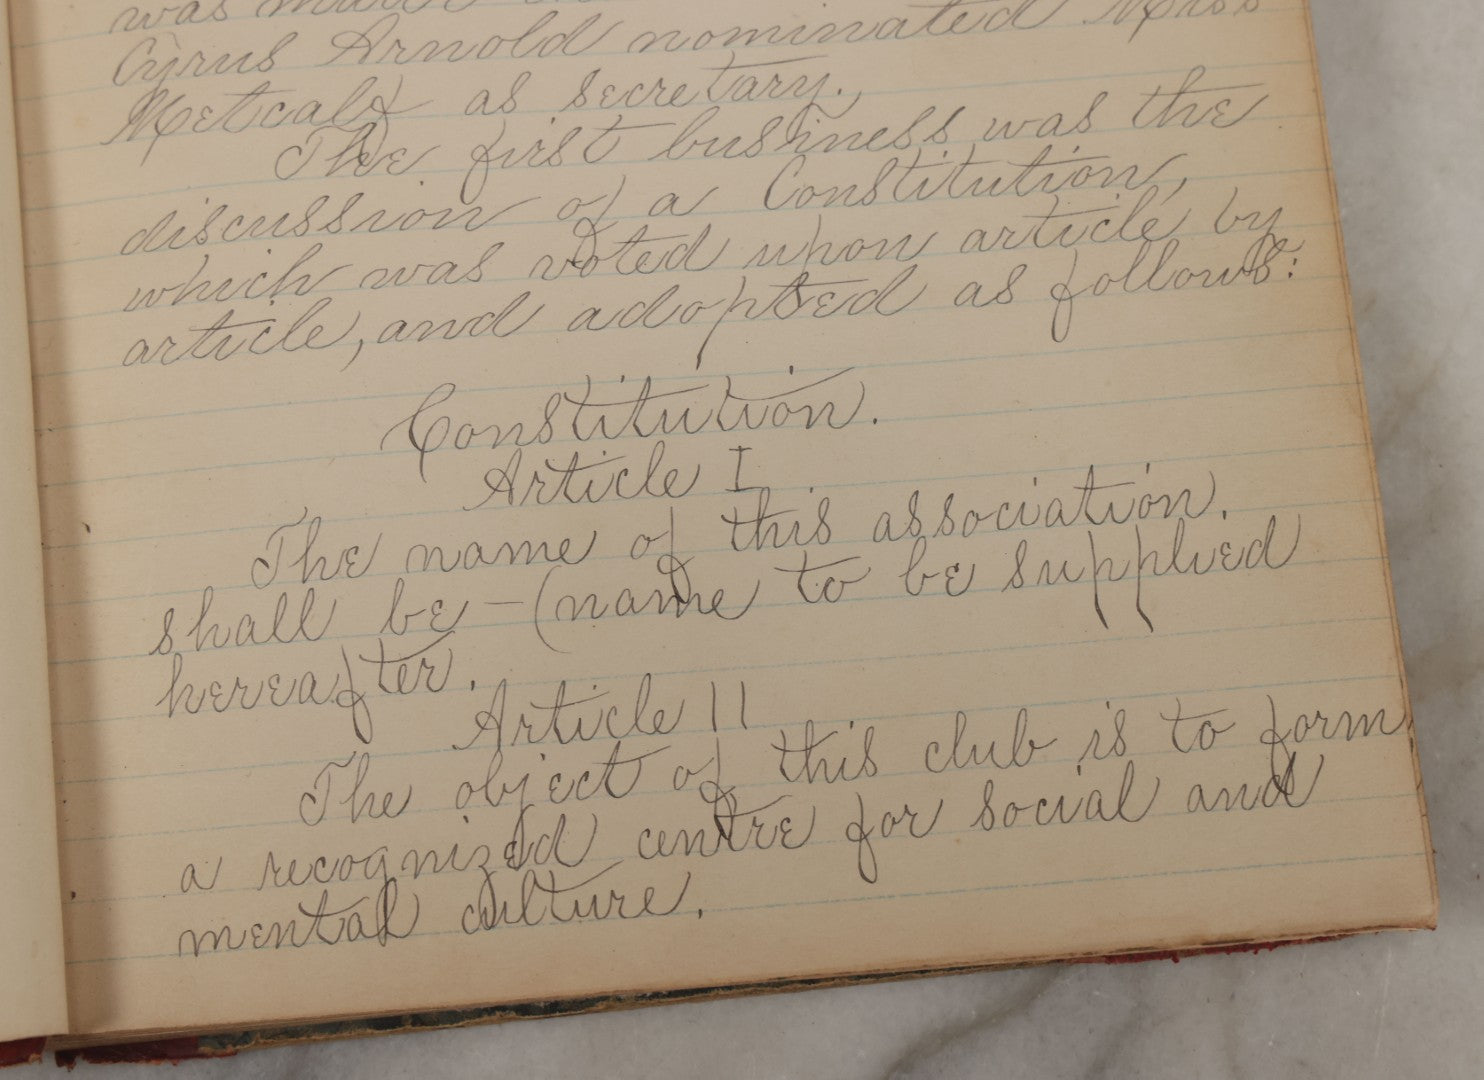 was
Cyrus Arnold nominated Miss
Metcalf as secretary.
The first business was the
discussion of a Constitution,
which was voted upon article by
article, and adopted as follows:
Constitution.
Article I
The name of this association.
shall be - (name to be supplied
hereafter.
Article II
The object of this club is to form
a recognized centre for social and
mental culture.